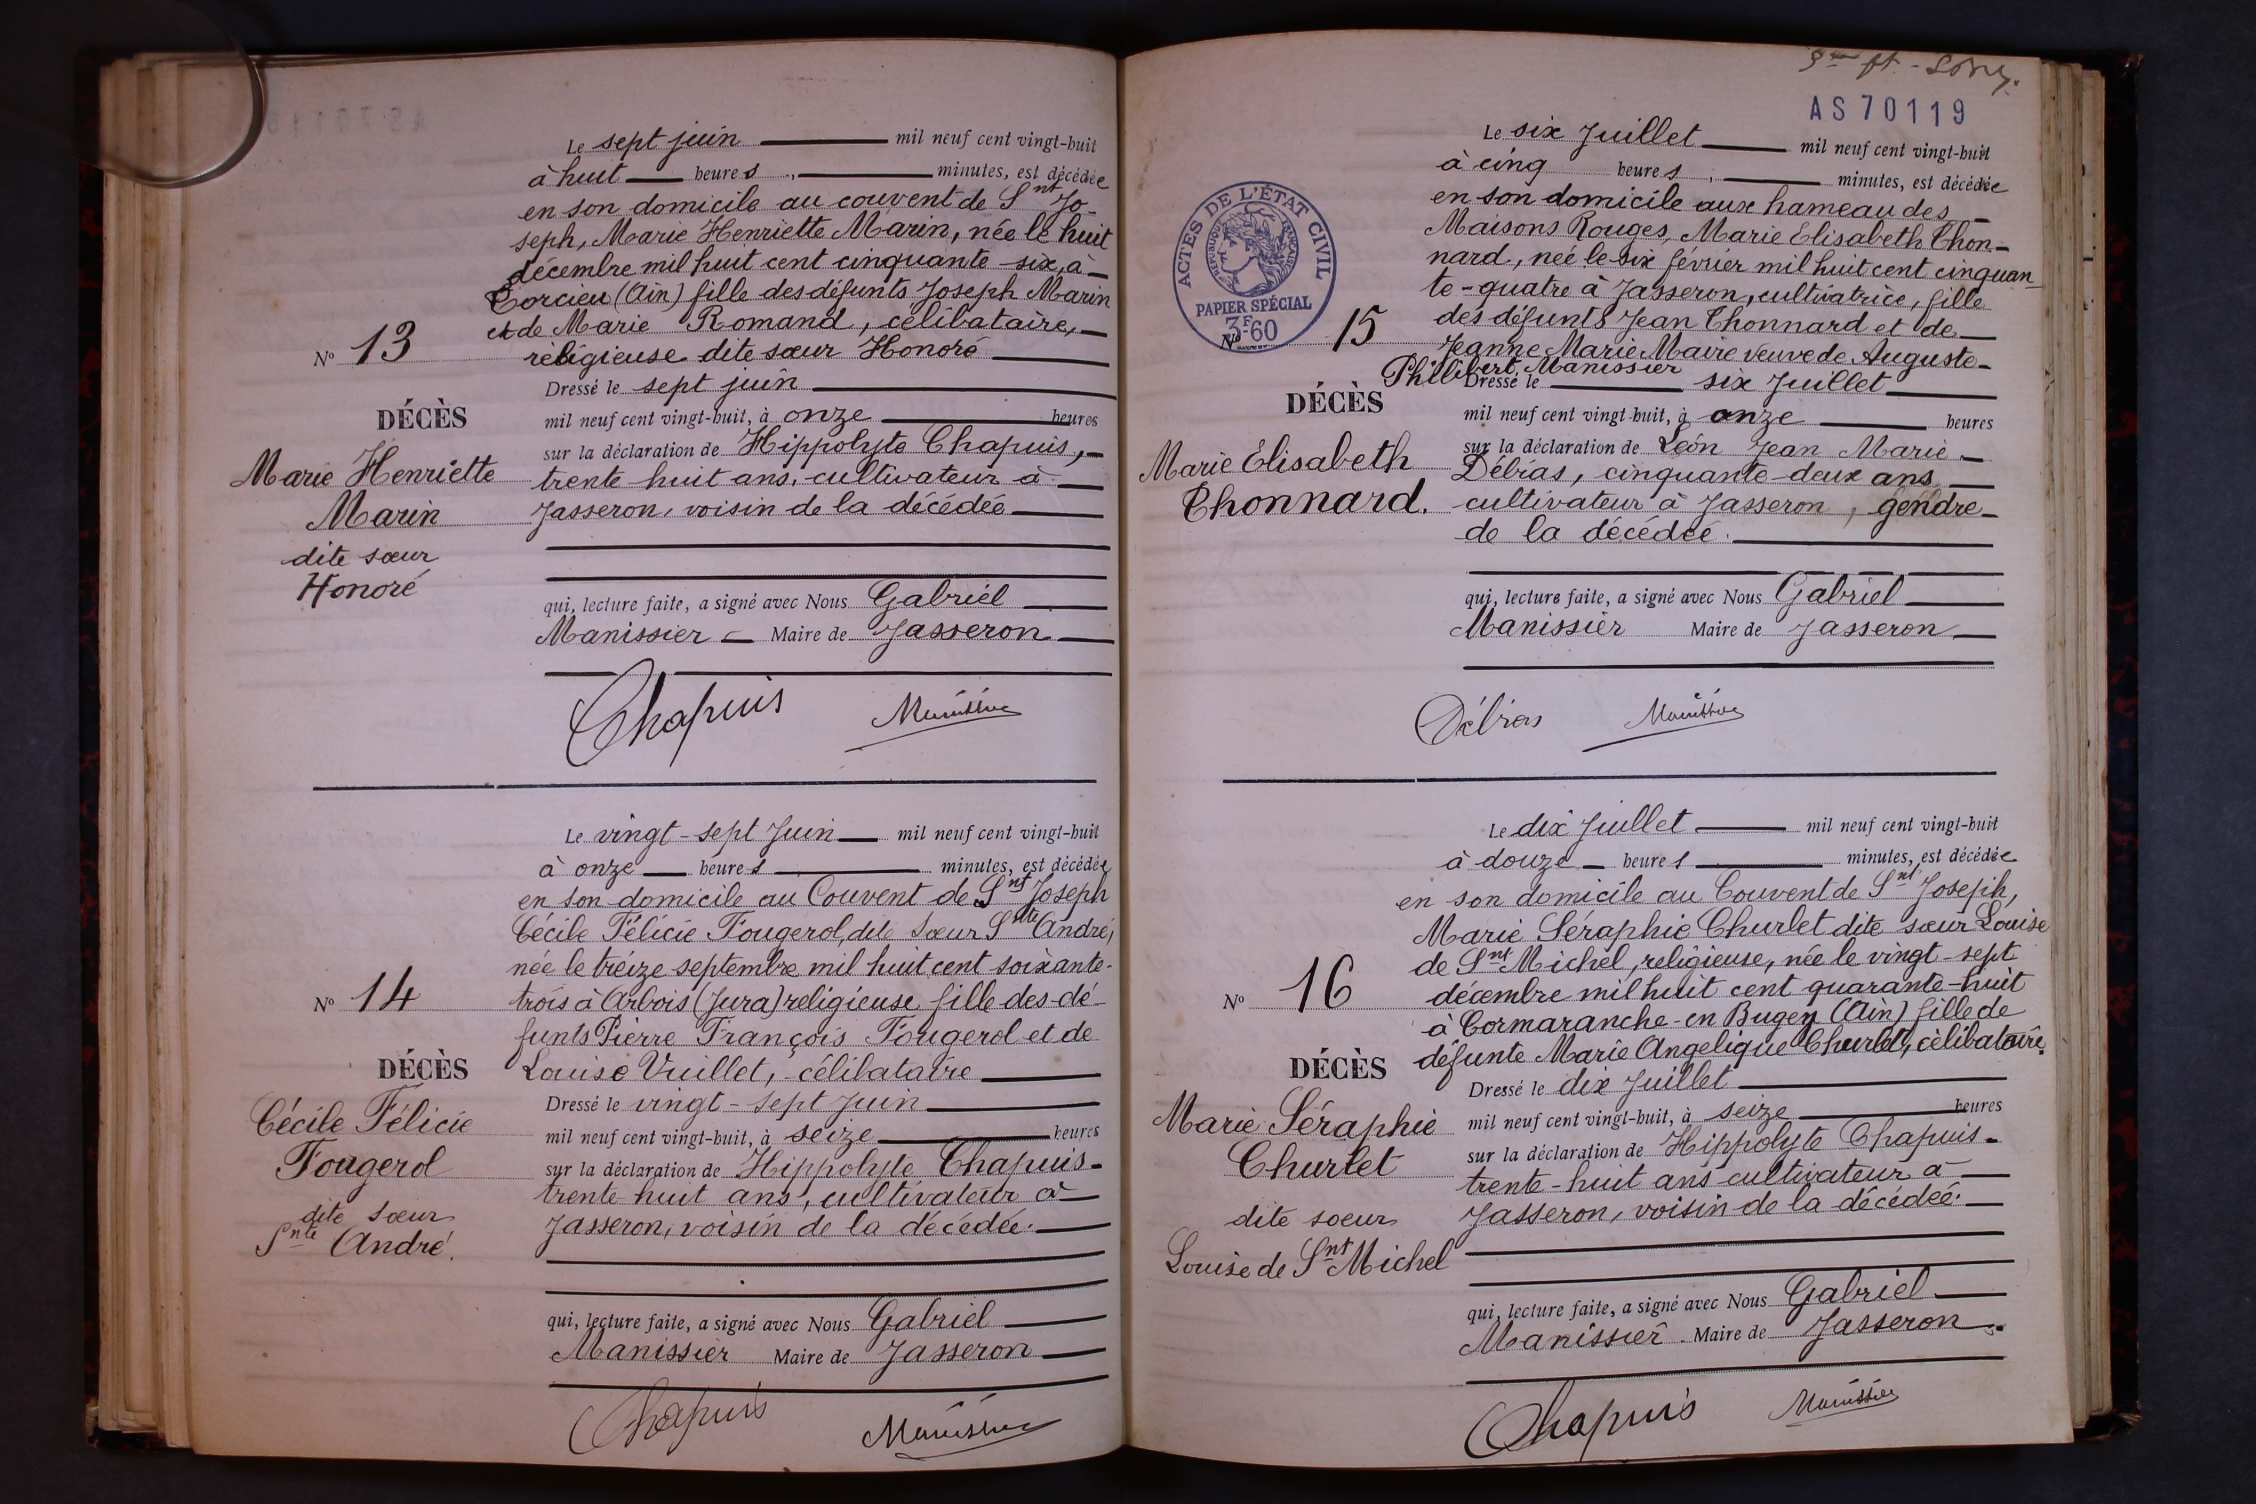 Le sept juin mil neuf cent vingt-huit
à huit heures , minutes, est décédée
en son domicile au couvent de Snt Jo-
seph, Marie Henriette Marin, née le huit
décembre mil huit cent cinquante six, à
Torcieu (Ain) fille des défunts Joseph Marin
et de Marie Romand, célibataire,
religieuse dite sœur Honoré
Nº 13
Dressé le sept juin
DÉCÈS
mil neuf cent vingt-huit, à onze heures
sur la déclaration de Hippolyte Chapuis,
Marie Henriette
trente huit ans, cultivateur à
Marin
Jasseron, voisin de la décédée
dite sœur
Honoré
qui, lecture faite, a signé avec Nous Gabriel
Manissier Maire de Jasseron
Chapuis Manissier
Le vingt-sept Juin mil neuf cent vingt-huit
à onze heures , minutes, est décédée
en son domicile au Couvent de Snt Joseph
Cécile Félicie Fougerol, dite Sœur Snte André,
née le treize septembre mil huit cent soixante-
trois à Arbois (Jura) religieuse fille des dé-
Nº 14
funts Pierre François Fougerol et de
Louise Vuillet, célibataire
DÉCÈS
Dressé le vingt-sept Juin
Cécile Félicie
mil neuf cent vingt-huit, à seize heures
Fougerol
sur la déclaration de Hippolyte Chapuis-
trente-huit ans, cultivateur à
dite sœur
Jasseron, voisin de la décédée.
Snte André.
qui, lecture faite, a signé avec Nous Gabriel
Manissier Maire de Jasseron
Chapuis Manissier
AS 70119
Le six Juillet mil neuf cent vingt-huit
à cinq heures , minutes, est décédée
en son domicile aux hameau des
Maisons Rouges, Marie Elisabeth Thon-
nard, née le six février mil huit cent cinquan
te-quatre à Jasseron, cultivatrice, fille
des défunts Jean Thonnard et de
Jeanne Marie Maire veuve de Auguste-
Philibert Manissier
ACTES DE L'ÉTAT CIVIL
RÉPUBLIQUE FRANÇAISE
PAPIER SPÉCIAL
3F60
Nº 15
Dressé le six Juillet
DÉCÈS
mil neuf cent vingt-huit, à onze heures
sur la déclaration de Léon Jean Marie
Marie Elisabeth
Débias, cinquante-deux ans
Thonnard.
cultivateur à Jasseron, gendre
de la décédée.
qui, lecture faite, a signé avec Nous Gabriel
Manissier Maire de Jasseron
Débias Manissier
Le dix Juillet mil neuf cent vingt-huit
à douze heures minutes, est décédée
en son domicile au Couvent de Snt Joseph,
Marie Séraphie Churlet dite sœur Louise
de Snt Michel, religieuse, née le vingt-sept
décembre mil huit cent quarante-huit
Nº 16
à Cormaranche-en Bugey (Ain) fille de
défunte Marie Angelique Churlet, célibataire.
DÉCÈS
Dressé le dix Juillet
Marie Séraphie
mil neuf cent vingt-huit, à seize heures
Churlet
sur la déclaration de Hippolyte Chapuis-
trente-huit ans cultivateur à
dite soeur
Jasseron, voisin de la décédée.
Louise de Snt Michel
qui, lecture faite, a signé avec Nous Gabriel
Manissier Maire de Jasseron
Chapuis Manissier